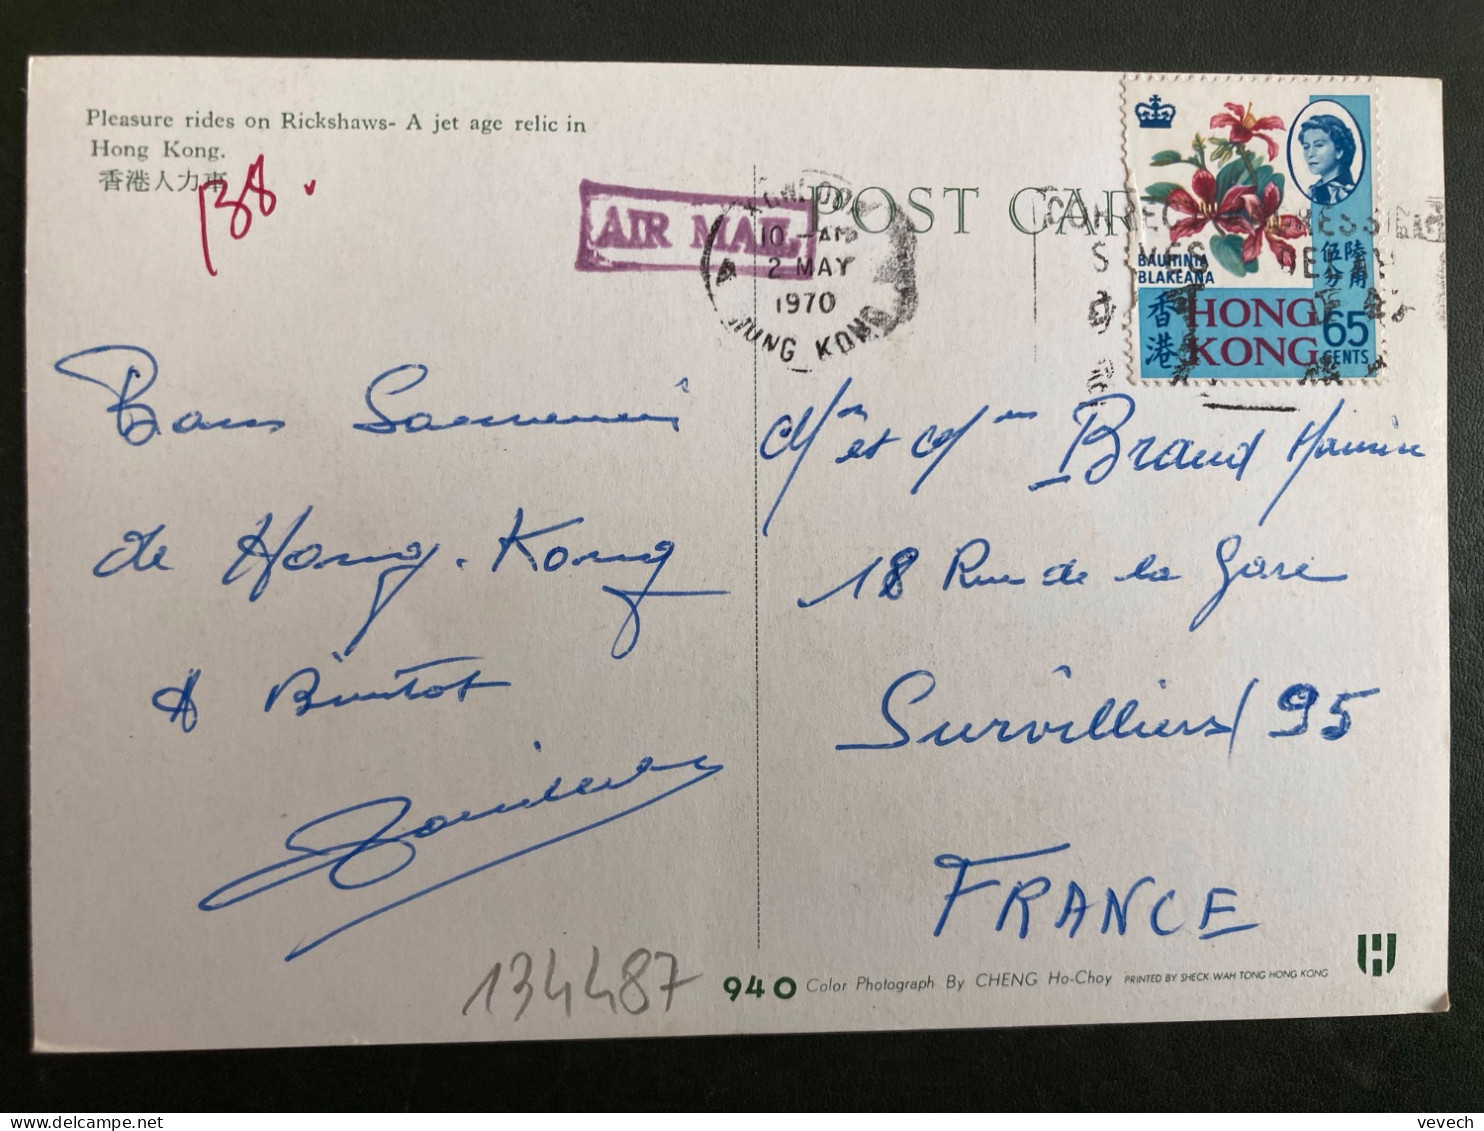 Pleasure rides on Rickshaws- A jet age relic in
Hong Kong.
香港人力車
138.
AIR MAIL
POST CAR
KOWLOON
10 - AM
2 MAY
1970
HONG KONG
CORRECT ADDRESSING
SAVES DELAY
BAUHINIA
BLAKEANA
伍分
陸角
香港
HONG
KONG
65
CENTS
Bons Souvenirs
de Hong-Kong
A Bientot
Mr et Mme Brand
18 Rue de la Gare
Survilliers / 95
FRANCE
134487
940 Color Photograph By CHENG Ho-Choy PRINTED BY SHECK WAH TONG HONG KONG
vevech